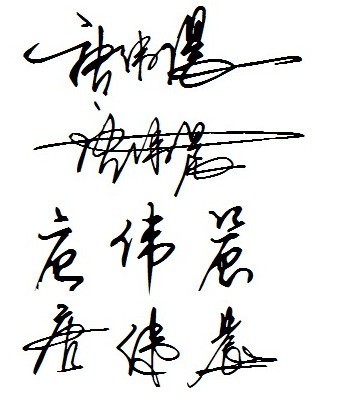 唐伟晨
唐伟晨
唐伟晨
唐伟晨